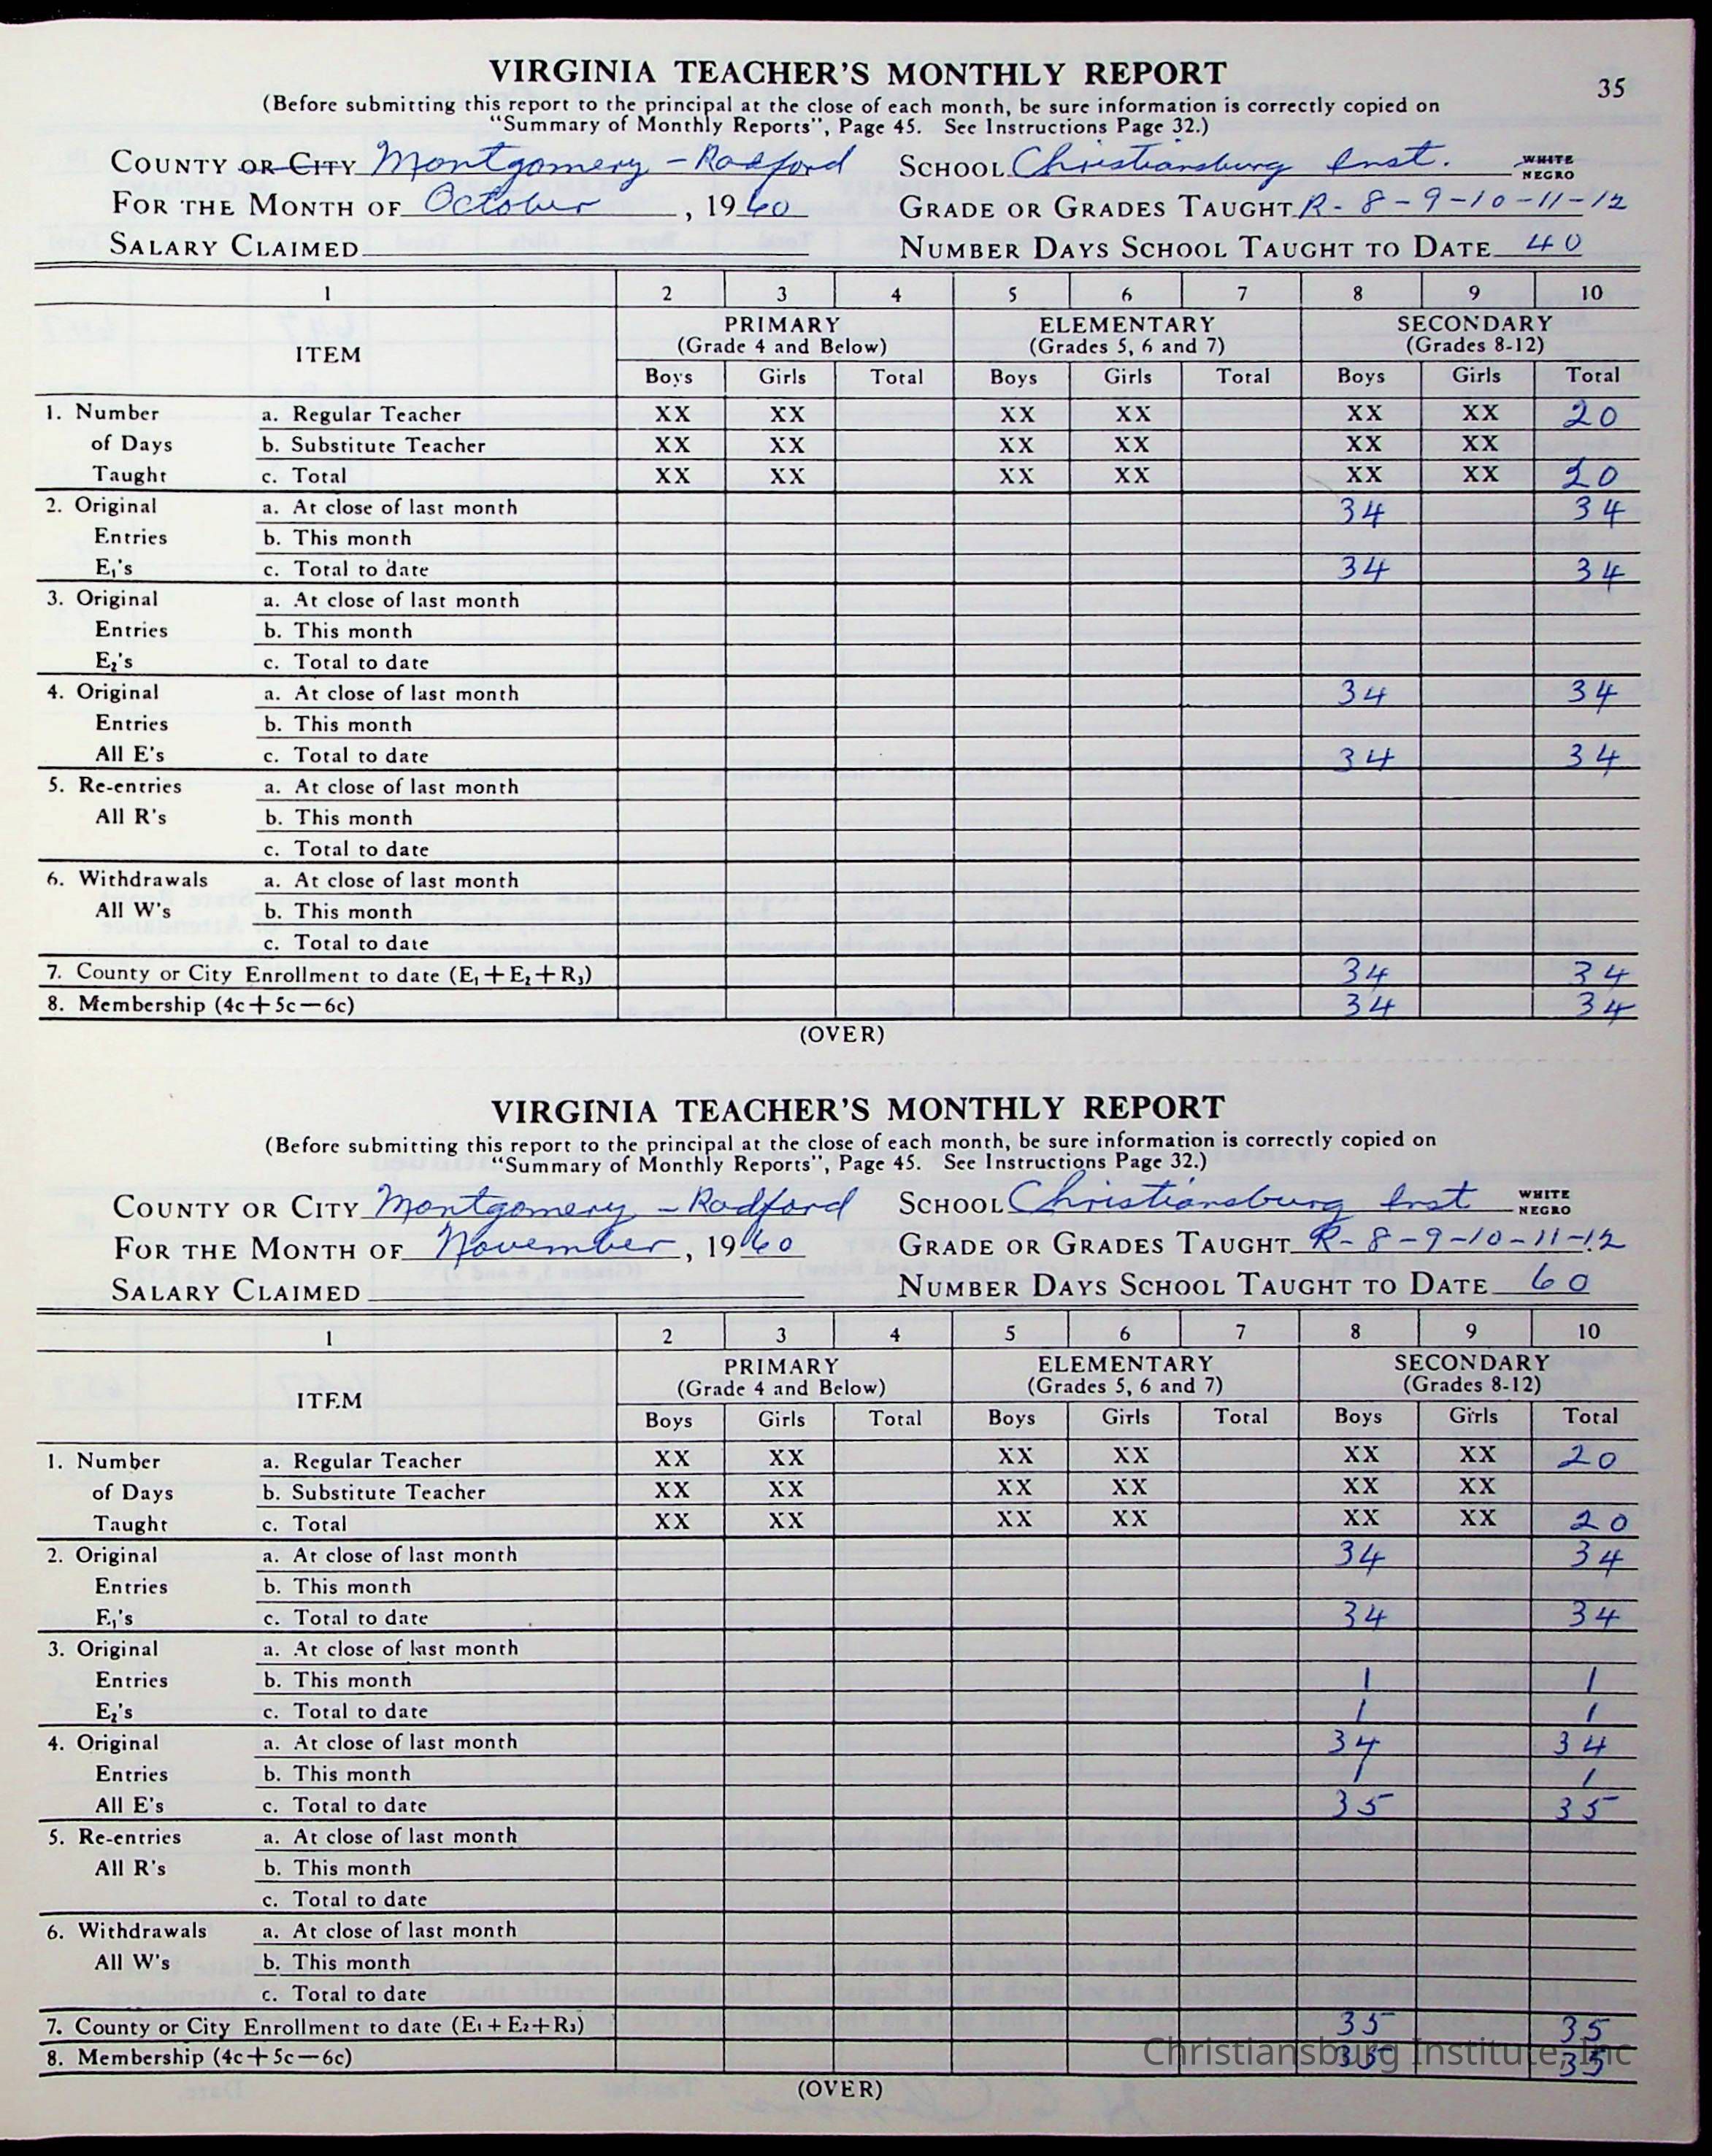 35
VIRGINIA TEACHER'S MONTHLY REPORT
(Before submitting this report to the principal at the close of each month, be sure information is correctly copied on
"Summary of Monthly Reports", Page 45. See Instructions Page 32.)
COUNTY OR CITY Montgomery - Radford SCHOOL Christiansburg Inst. WHITE NEGRO
FOR THE MONTH OF October, 1960 GRADE OR GRADES TAUGHT R-8-9-10-11-12
SALARY CLAIMED NUMBER DAYS SCHOOL TAUGHT TO DATE 40
1 2 3 4 5 6 7 8 9 10
ITEM PRIMARY ELEMENTARY SECONDARY
(Grade 4 and Below) (Grades 5, 6 and 7) (Grades 8-12)
Boys Girls Total Boys Girls Total Boys Girls Total
1. Number a. Regular Teacher XX XX XX XX XX XX 20
of Days b. Substitute Teacher XX XX XX XX XX XX
Taught c. Total XX XX XX XX XX XX 20
2. Original a. At close of last month 34 34
Entries b. This month
E₁'s c. Total to date 34 34
3. Original a. At close of last month
Entries b. This month
E₂'s c. Total to date
4. Original a. At close of last month 34 34
Entries b. This month
All E's c. Total to date 34 34
5. Re-entries a. At close of last month
All R's b. This month
c. Total to date
6. Withdrawals a. At close of last month
All W's b. This month
c. Total to date
7. County or City Enrollment to date (E₁+E₂+R₃) 34 34
8. Membership (4c+5c—6c) 34 34
(OVER)
VIRGINIA TEACHER'S MONTHLY REPORT
(Before submitting this report to the principal at the close of each month, be sure information is correctly copied on
"Summary of Monthly Reports", Page 45. See Instructions Page 32.)
COUNTY OR CITY Montgomery - Radford SCHOOL Christiansburg Inst WHITE NEGRO
FOR THE MONTH OF November, 1960 GRADE OR GRADES TAUGHT R-8-9-10-11-12
SALARY CLAIMED NUMBER DAYS SCHOOL TAUGHT TO DATE 60
1 2 3 4 5 6 7 8 9 10
ITEM PRIMARY ELEMENTARY SECONDARY
(Grade 4 and Below) (Grades 5, 6 and 7) (Grades 8-12)
Boys Girls Total Boys Girls Total Boys Girls Total
1. Number a. Regular Teacher XX XX XX XX XX XX 20
of Days b. Substitute Teacher XX XX XX XX XX XX
Taught c. Total XX XX XX XX XX XX 20
2. Original a. At close of last month 34 34
Entries b. This month
E₁'s c. Total to date 34 34
3. Original a. At close of last month
Entries b. This month 1 1
E₂'s c. Total to date 1 1
4. Original a. At close of last month 34 34
Entries b. This month 1 1
All E's c. Total to date 35 35
5. Re-entries a. At close of last month
All R's b. This month
c. Total to date
6. Withdrawals a. At close of last month
All W's b. This month
c. Total to date
7. County or City Enrollment to date (E₁+E₂+R₃) 35 35
8. Membership (4c+5c—6c) 35 35
Christiansburg Institute, Inc
(OVER)